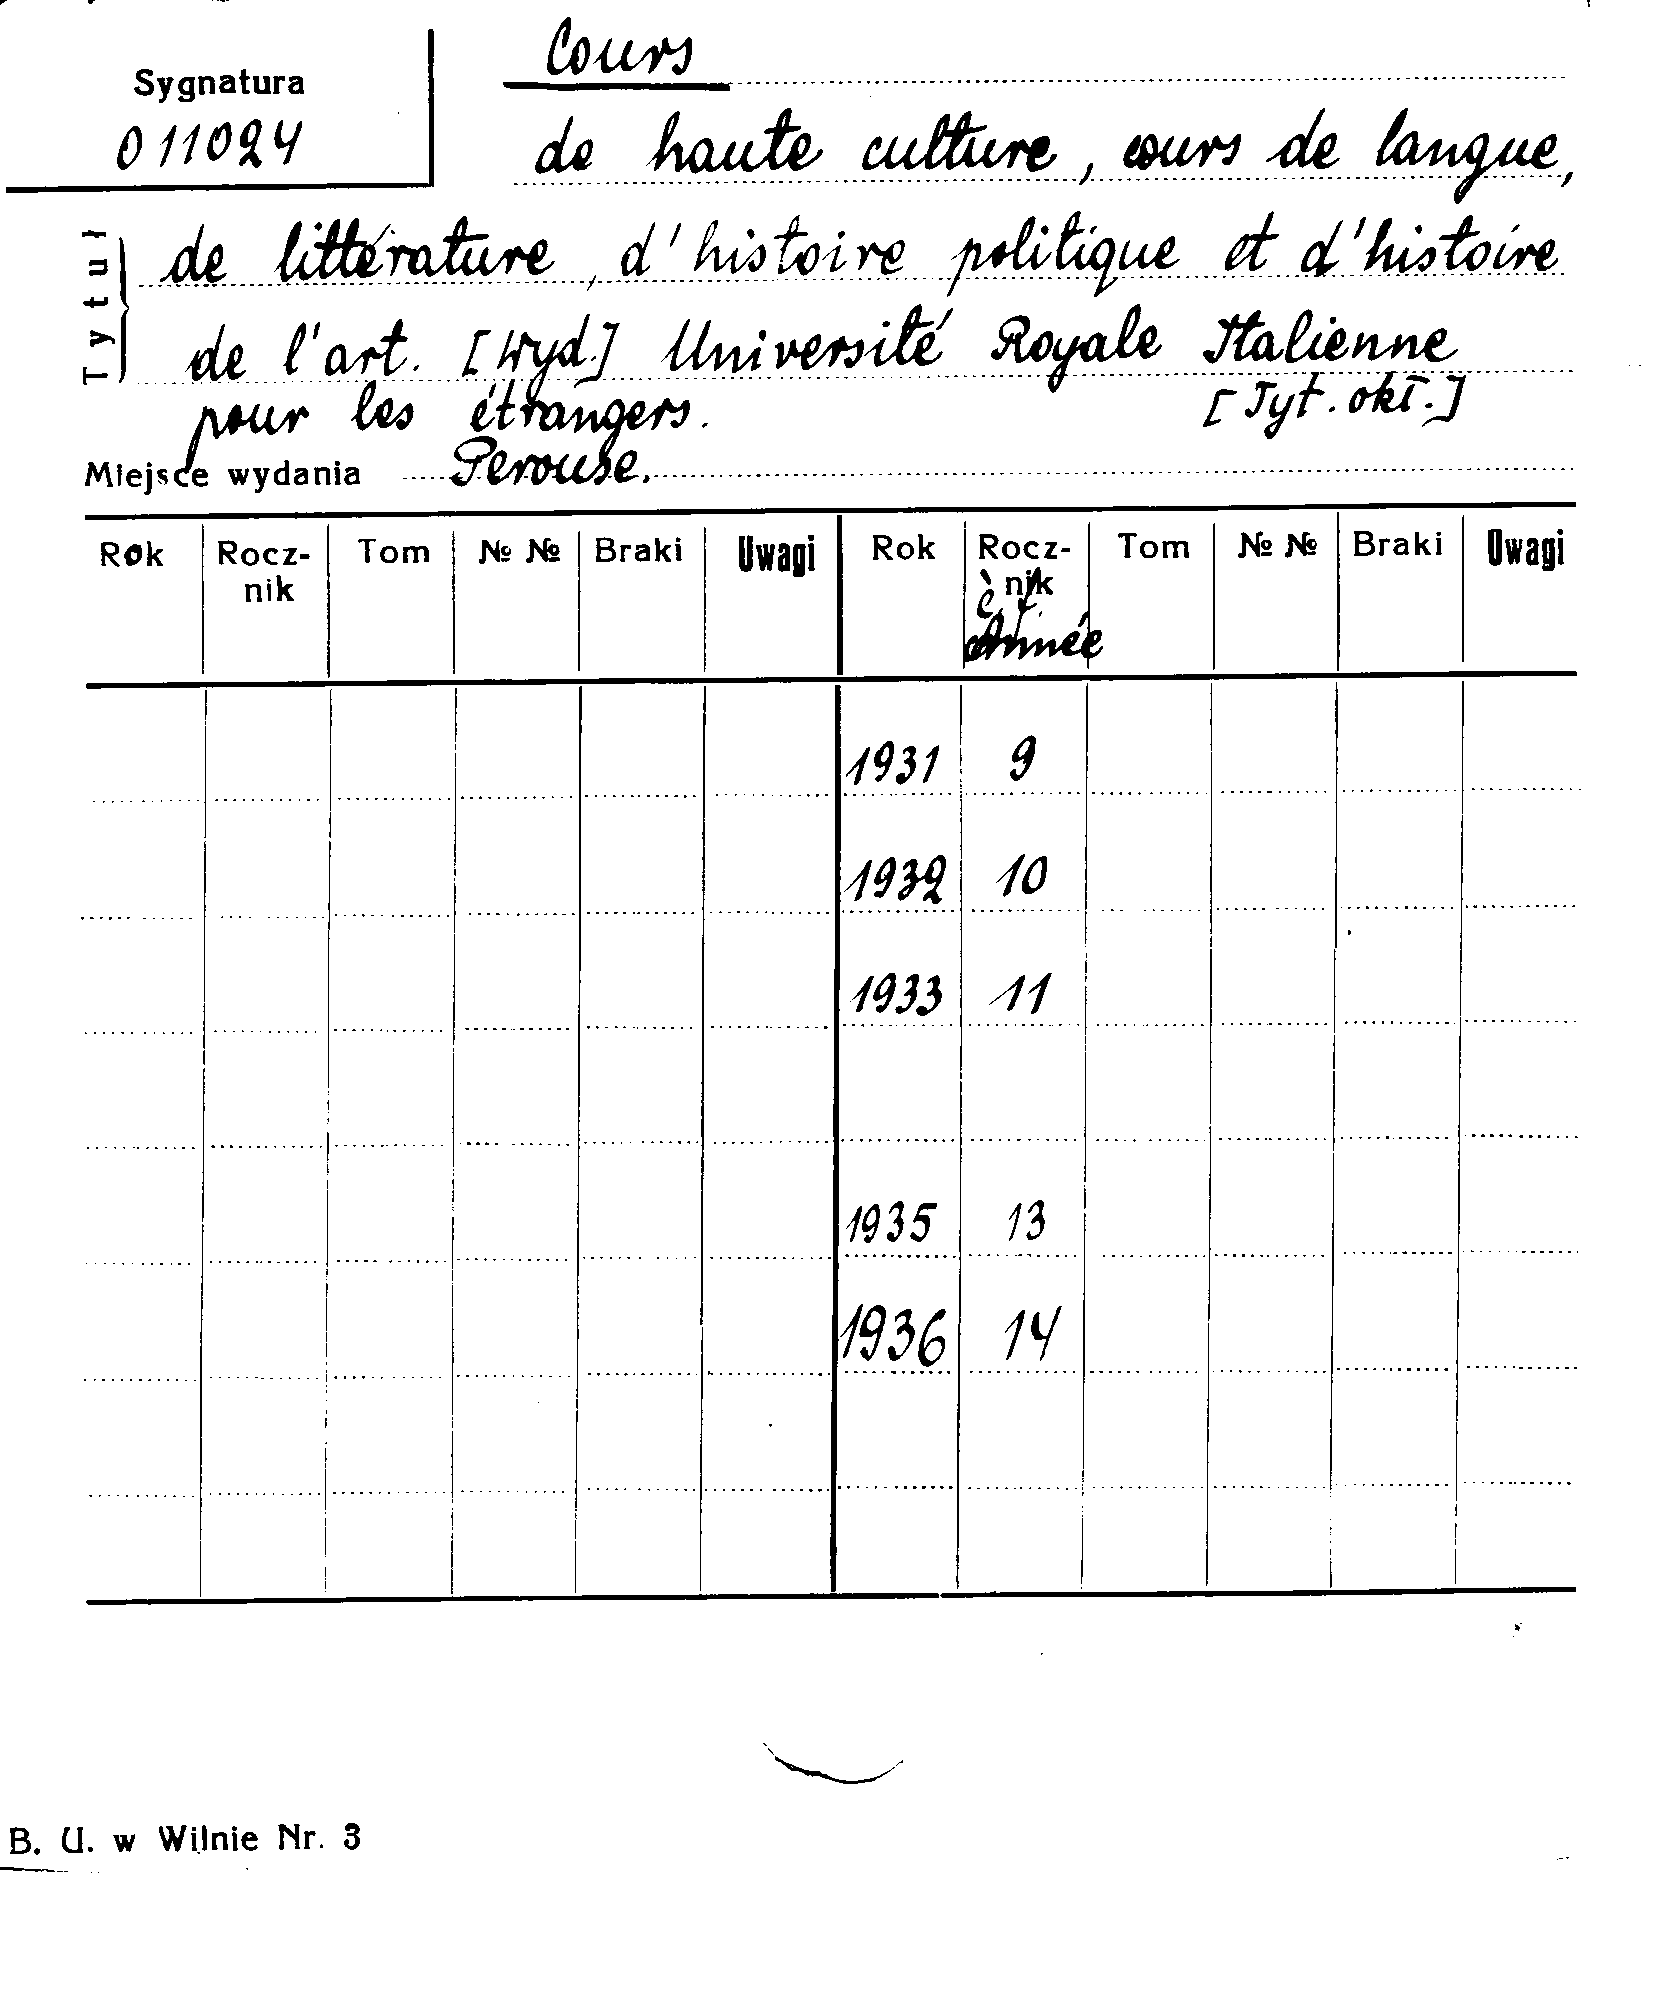 Sygnatura
011024
Cours
de haute culture, cours de langue,
Tytuł
de littérature, d'histoire politique et d'histoire
de l'art. [Wyd.] Université Royale Italienne
pour les étrangers. [Tyt. okł.]
Miejsce wydania Perouse.
Rok Rocz-nik Tom № № Braki Uwagi Rok Rocz-nik Tom № № Braki Uwagi
Année
1931 9
1932 10
1933 11
1935 13
1936 14
B. U. w Wilnie Nr. 3